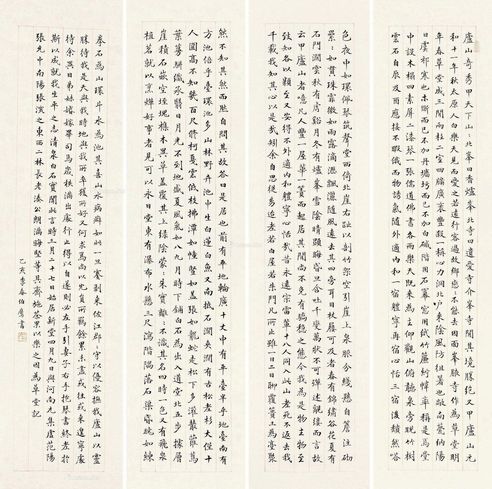 廬山奇秀甲天下山北峯曰香爐峯北寺曰遺愛寺介峯寺間其境勝絕又甲廬山元
和十一年秋太原人白樂天見而愛之若遠行客過故鄉戀戀不能去因面峯腋寺作為草堂明
年春草堂成三間兩柱二室四牖廣袤豐殺一稱心力洞北戶來陰風防徂暑也敞南甍納陽
日虞祁寒也木斵而已不加丹墻圬而已不加白磩階用石冪窗用紙竹簾紵幃率稱是焉堂
中設木榻四素屏二漆琴一張儒道佛書各兩三卷樂天既來為主仰觀山俯聽泉旁睨竹樹
雲石自辰及酉應接不暇俄而物誘氣隨外適內和一宿體寧再宿心恬三宿後頹然嗒
然不知其然而然自問其故答曰是居也前有平地輪廣十丈中有平臺半平地臺南有
方池倍平臺環池多山竹野卉池中生白蓮白魚又南抵石澗夾澗有古松老杉大僅十
人圍高不知幾百尺修柯戛雲低枝拂潭如幢豎如蓋張如龍蛇走松下多灌叢蘿蔦
葉蔓駢織承翳日月光不到地盛夏風氣如八九月時下鋪白石為出入道堂北五步據層
崖積石嵌空垤堄雜木異草蓋覆其上綠陰蒙蒙朱實離離不識其名四時一色又有飛泉
植茗就以烹燀好事者見可以永日堂東有瀑布水懸三尺瀉階隅落石渠昏曉如練
色夜中如環珮琴筑聲堂西倚北崖右趾以剖竹架空引崖上泉脈分綫懸自簷注砌
纍纍如貫珠霏微如雨露滴瀝飄灑隨風遠去其四旁耳目杖屨可及者春有錦繡谷花夏有
石門澗雲秋有虎谿月冬有爐峯雪陰晴顯晦昏旦含吐千變萬狀不可殫述覼縷而言故
云甲廬山者噫凡人豐一屋華一簀而起居其間尚不免有驕穩之態今我為是物主物至
致知各以類至又安得不外適內和體寧心恬哉昔永遠宗雷輩十八人同入此山老死不返去我
千載我知其心以是哉矧余自思從幼迨老若白屋若朱門凡所止雖一日二日輒覆簣土為臺聚
拳石為山環斗水為池其喜山水病癖如此一旦蹇剝來佐江郡郡守以優容撫我廬山以靈
勝待我是天與我時地與我所卒獲所好又何求焉尚以冗員所羈餘累未盡或往或來未遑寧處
待余異日弟妹婚嫁畢司馬歲秩滿出處行止得以自遂則必左手引妻子右手抱琴書終老於
斯以成就我生平之志清泉白石實聞此言時三月二十七日始居新堂四月九日與河南元集虛范陽
張允中南陽張深之東西二林長老湊公朗滿晦堅等具齋施茶果以樂之因為草堂記
乙亥季春伯鷹書